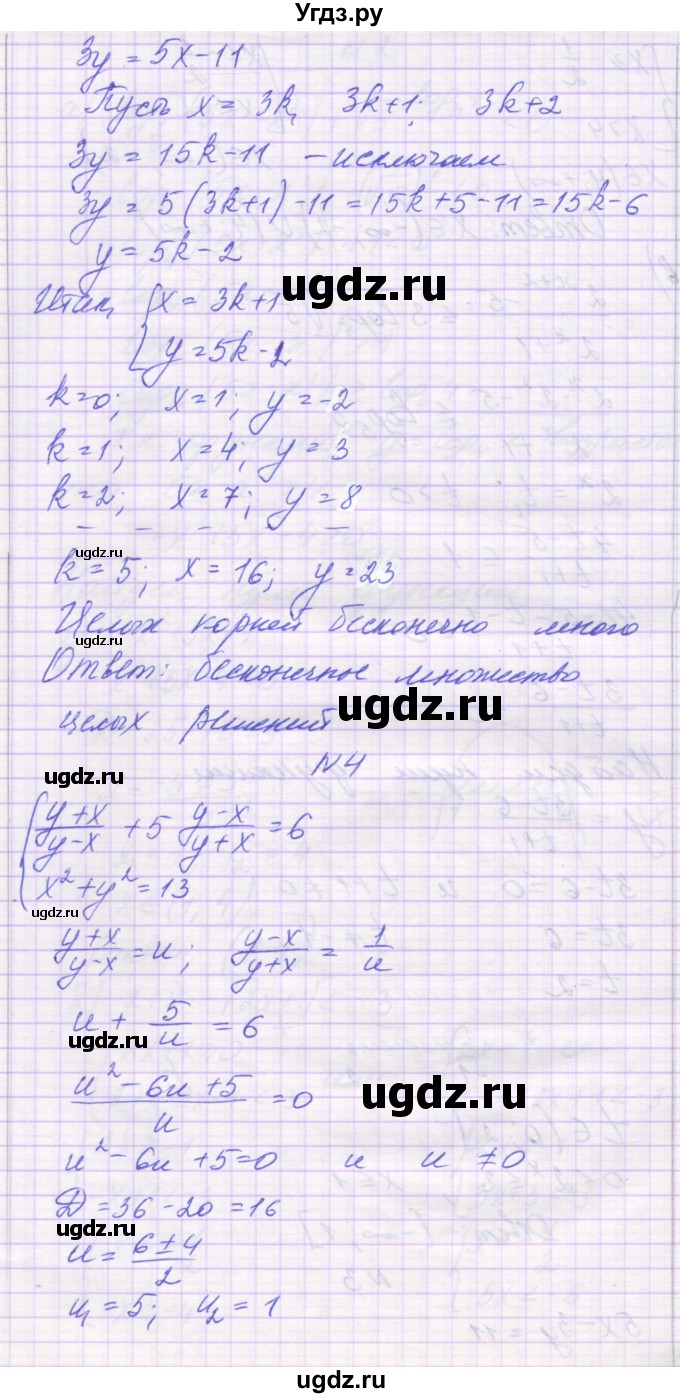 Угдз.ру
3y = 5x-11
Пусть x = 3k, 3k+1; 3k+2
3y = 15k-11 - исключаем
3y = 5(3k+1)-11 = 15k+5-11 = 15k-6
y = 5k-2
ugdz.ru
Итак, { x = 3k+1
y = 5k-2
k=0; x=1; y=-2
k=1; x=4; y=3
k=2; x=7; y=8
ugdz.ru
k=5; x=16; y=23
Целых корней бесконечно много
Ответ: бесконечное множество
целых решений
ugdz.ru
N4
ugdz.ru
{ (y+x)/(y-x) + 5 (y-x)/(y+x) = 6
x²+y²=13
ugdz.ru
(y+x)/(y-x) = u; (y-x)/(y+x) = 1/u
u + 5/u = 6
ugdz.ru
(u²-6u+5)/u = 0
ugdz.ru
u²-6u+5=0 и u ≠0
Д=36-20=16
ugdz.ru
u = (6±4)/2
u₁ = 5; u₂ = 1
ugdz.ru